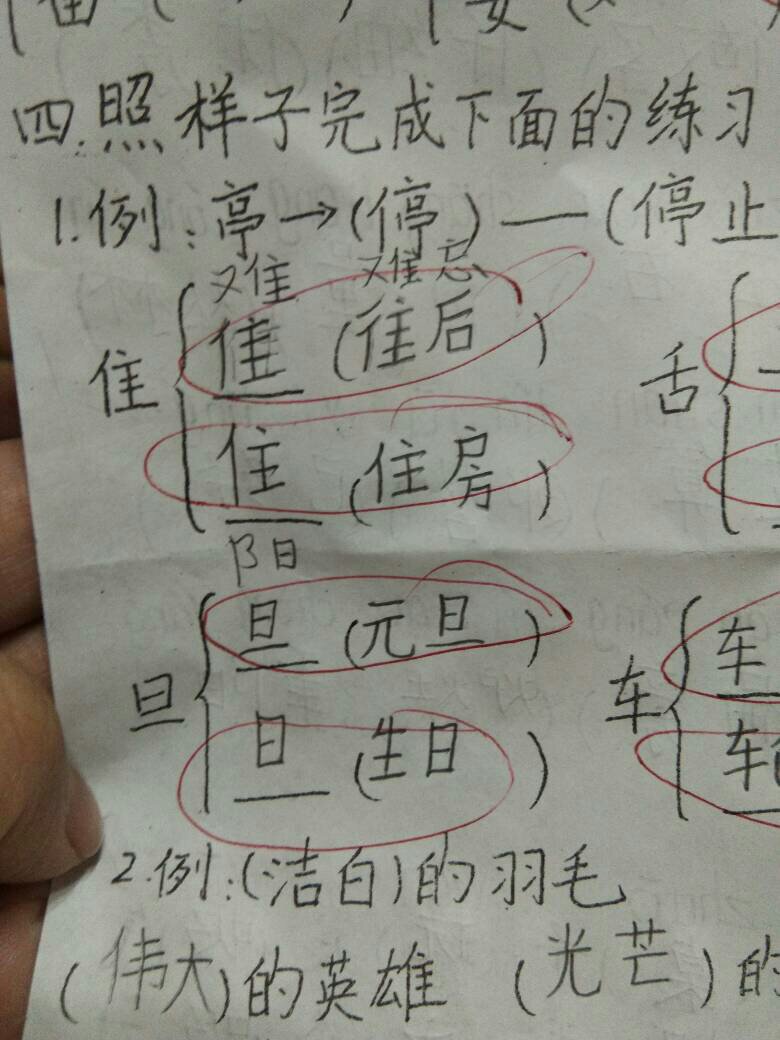 四.照样子完成下面的练习
1.例:亭→(停)—(停止
难 难忘
隹 隹 (往后) 舌
住 (住房)
阳
旦 旦 (元旦) 车 车
日 (生日) 车
2.例:(洁白)的羽毛
(伟大)的英雄 (光芒)的